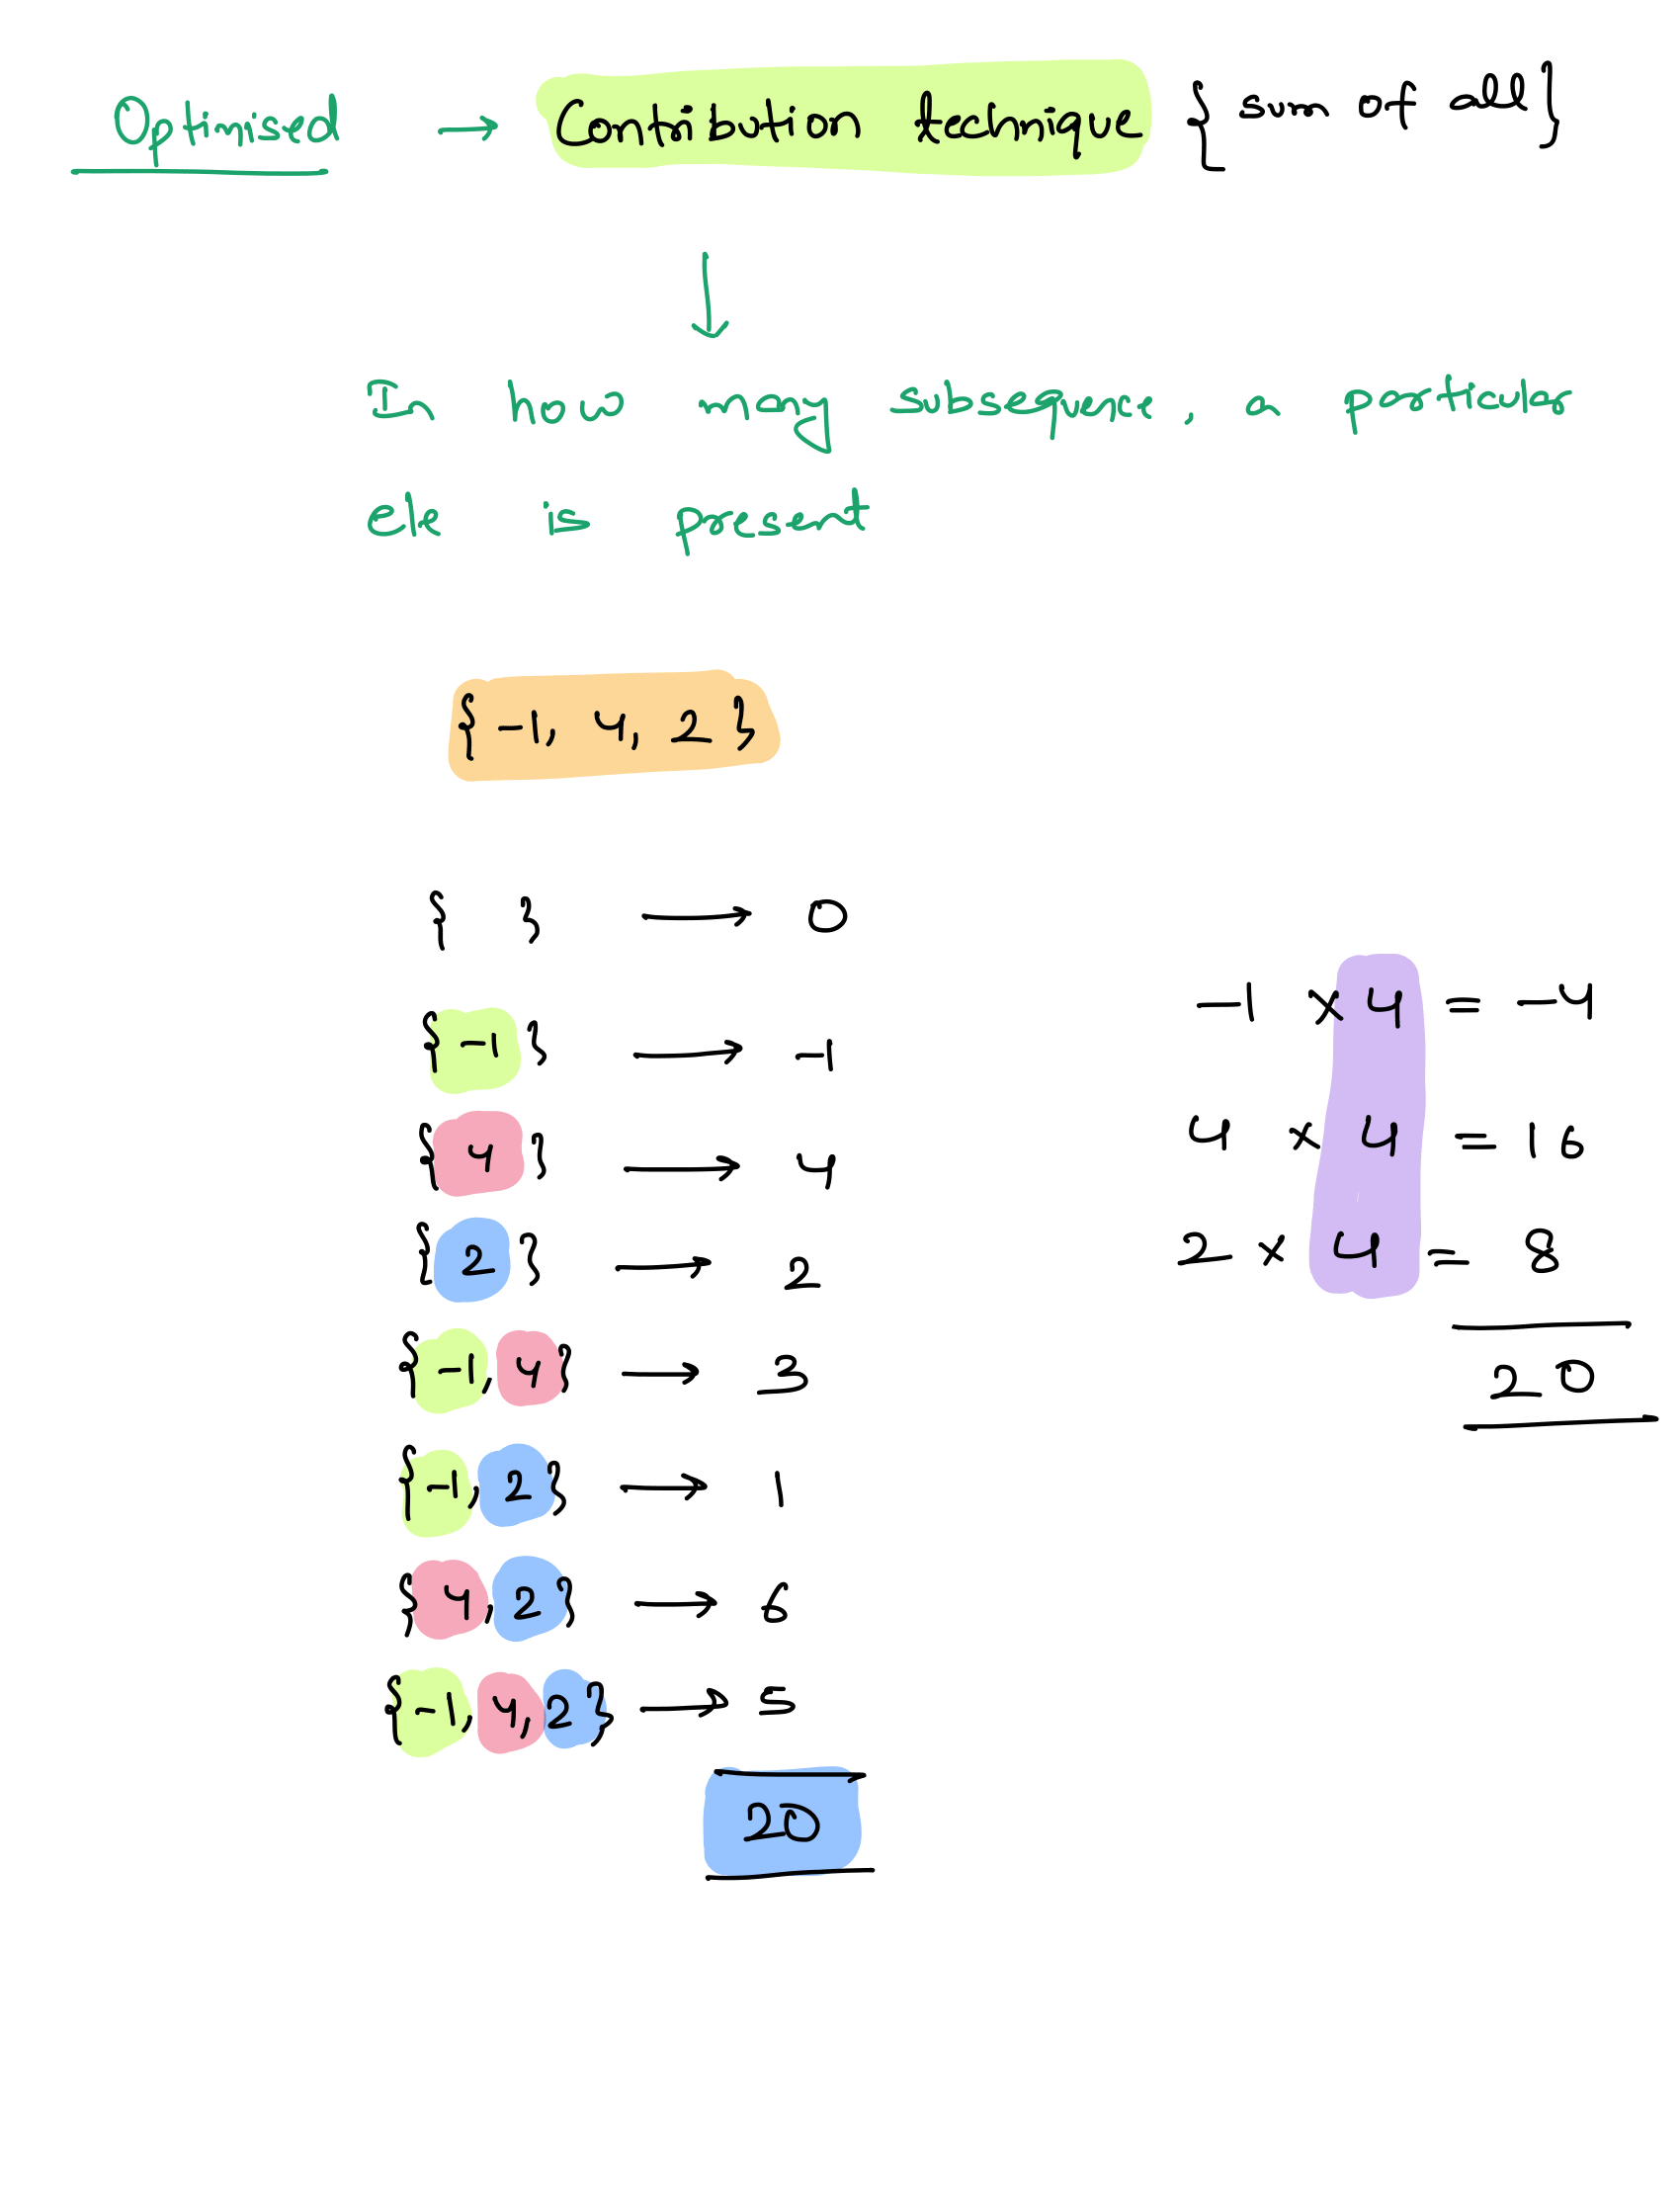 Optimised → Contribution technique { sum of all }
↓
In how many subsequence, a particular
ele is present
{ -1, 4, 2 }
{ } → 0
{ -1 } → -1
{ 4 } → 4
{ 2 } → 2
{ -1, 4 } → 3
{ -1, 2 } → 1
{ 4, 2 } → 6
{ -1, 4, 2 } → 5
20
-1 × 4 = -4
4 × 4 = 16
2 × 4 = 8
20